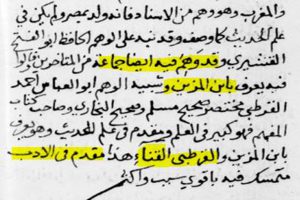 والمغرب وهو وهم من الاستاد فانه ولد بمصر ولم يكن في
علم الحديث كما وصفه وقد نبه على الوهم الحافظ ابو الفتح
القشيري وقد وهم فيه ايضا جماعة من المتاخرين فقالوا
فيه يعرف بابن المزين وشبيه الوهم ابو العباس احمد
القرطبي مختصر صحيح مسلم وصحيح البخاري وصاحب كتاب
المفهم فهو كبير في العلم ومقدم في علم الحديث وهو يعرف
بابن المزين والقرطبي الفنا هذا مقدم في الادب
متمسك فيه باقوى سبب